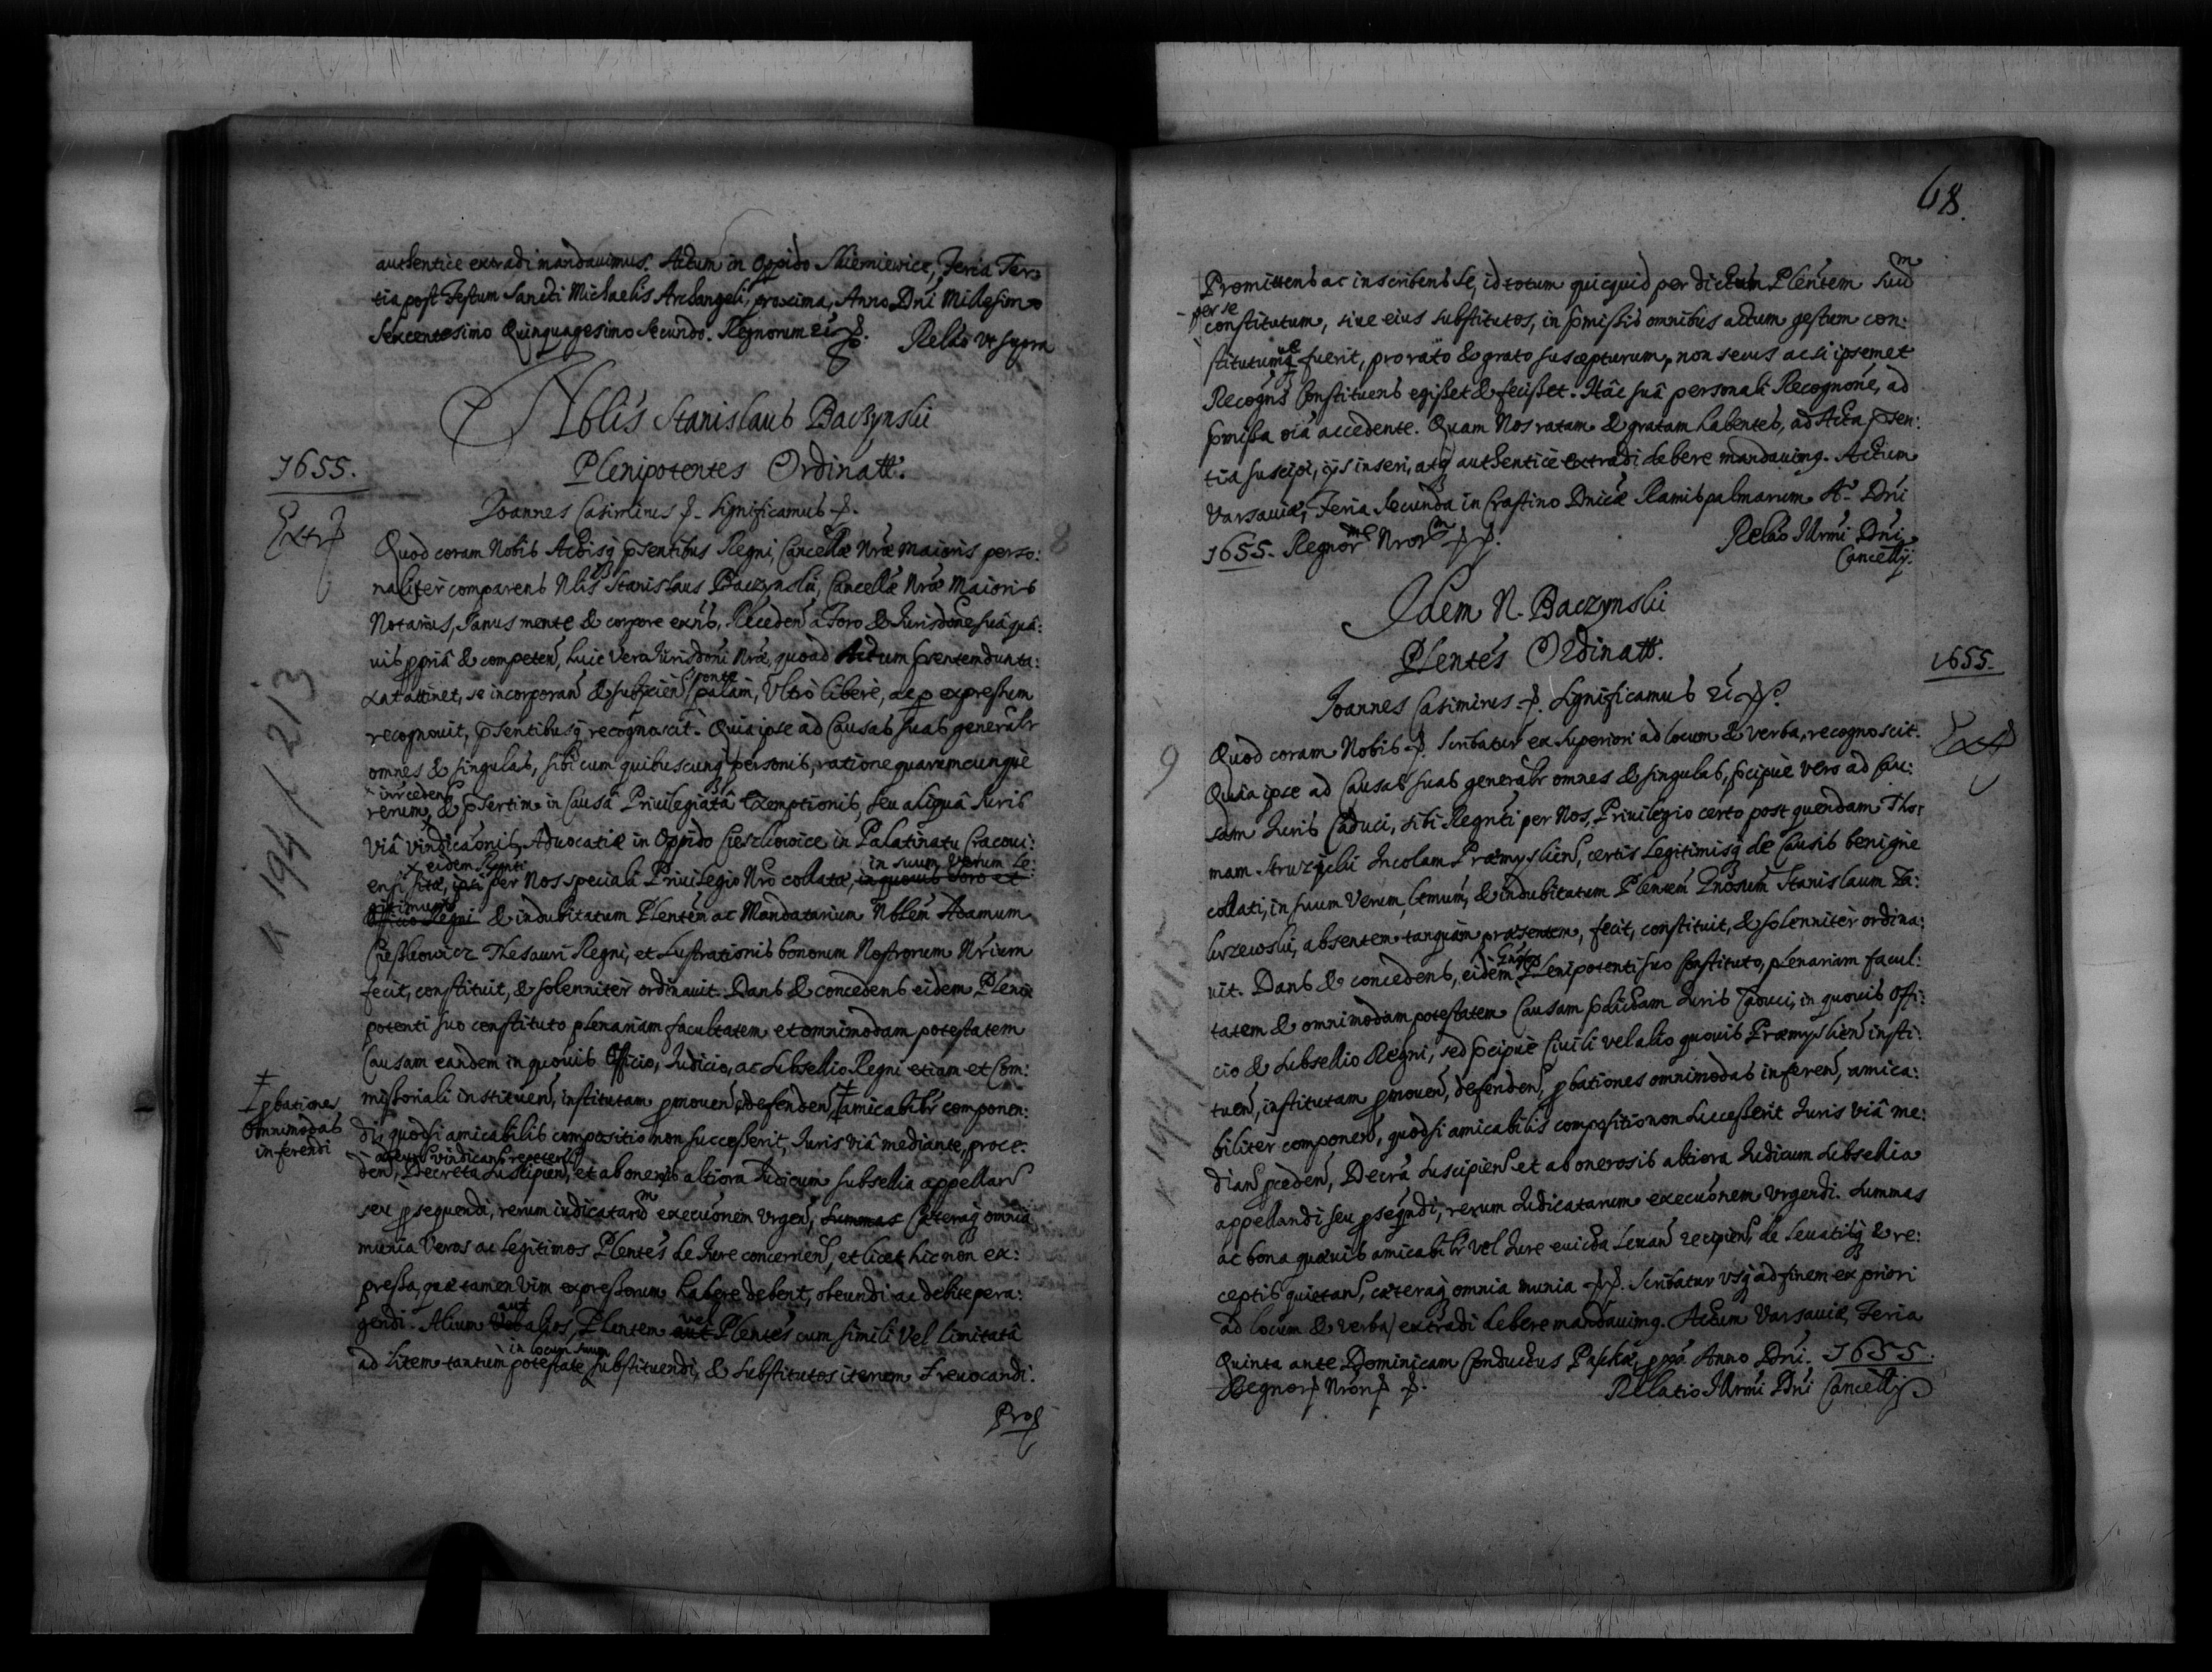 authentice extradi mandauimus. Actum in Oppido Skierniewice, Feria Ter=
tia post Festum Sancti Michaelis Archangeli, proxima, Anno Dni Millesimo
Sexcentesimo Quinquagesimo Secundo. Regnorum
Relao vt supra
Nblis Stanislaus Baczynski
Plenipotentes Ordinatt.
1655.
Extr
Joannes Casimirus Significamus
Quod coram Nobis Actisq pntibus Regni, Cancellae Nrae Maioris perso:
naliter comparens Nblis Stanislaus Baczynski, Cancellae Nrae Maioris
Notarius, Sanus mente & corpore exns, Receden a Foro & Jurisdone sua qua:
uis ppria & competen, huic vero Jurisdoni Nrae, quoad Actum pntem dunta:
xat attinet, se incorporan & subycien sponte palam, Vltro libere, ac p expressum
recognouit, psentibusq recognoscit. Quia ipse ad Causas suas generalr
omnes & singulas, sibi cum quibuscunq personis, ratione quarumcunque
rerum, & psertim in Causa Privilegiata Exemptionis, seu aliqua Juris
via vindicaonis, Aduocatiae in Oppido Cieszkowice in Palatinatu Cracoui:
x eidem Rgnti in suum Verum Le:
ensi sitae, ipsi per Nos speciali Priuilegio Nro collatae, in quouis Foro et
gitimum
Officio Regni & indubitatum Plentem ac Mandatarium Nblem Adamum
Thesauri Regni, et Lustrationis bonorum Nostrorum Nrium
fecit, constituit, & solenniter ordinauit. Dans & concedens eidem Pleni
potenti suo constituto plenariam facultatem et omnimodam potestatem
Causam eandem in quouis Officio, Judicio, ac Subsellio Regni etiam et Com:
missoriali instituen, institutam pmouen, defenden, amicabilr componen:
pbationes
omnimodas
inferendi
di, quodsi amicabilis compositio non successerit, Juris via mediante, proce:
den, Decreta suscipien, et ab onerosis altiora Judicum subsellia appellan
seu psequendi, rerum iudicataru executionem vrgen, Summas caeteraq omnia
munia Veros ac legitimos Plentes de Jure concernen, et licet hic non ex:
pressa, quae tamen vim expressorum habere debent, obeundi ac debite pera:
gendi. Alium aut alios, Plentem vel Plentes cum simili vel limitata
in locum suum
ad litem tantum potestate substituendi, & substitutos iterum revocandi.
Pro
68.
Promittens ac inscribens se, id totum quicquid per dictum Plentem suu
per se
constitutum, siue eius substitutos, in pmissis omnibus actum gestum con:
stitutumq fuerit, pro rato & grato suscepturum, non secus ac si ipsemet
Recogns Constituens egisset & fecisset. Hac sua personali Recognone, ad
pmissa oia accedente. Quam Nos ratam & gratam habentes, ad Acta psen:
tia suscipi, ijs inseri, atq authentice extradi debere mandauimq. Actum
Varsauiae, Feria Secunda in Crastino Dnicae Ramispalmarum Ao Dni
1655. Regnor Nror
Relao Illrmi Dni
Cancellij.
Idem N. Baczynski
Plentes Ordinatt.
1655.
Joannes Casimirus Significamus
Quod coram Nobis Scribatur ex superiori ad locum & verba, recognoscit.
Quia ipse ad Causas suas generalr omnes & singulas, pcipue vero ad Cau:
sam Juris Caduci, sibi Regnti per Nos, Priuilegio certo post quendam Tho:
mam Incolam Praemyslien, certis legitimisq de Causis benigne
collati, in suum Verum, ltmum, & indubitatum Plentem Gnosum Stanislaum Za:
krzewski, absentem tanquam praesentem, fecit, constituit, & solenniter ordina:
uit. Dans & concedens, eidem Plenipotenti suo constituto, plenariam facul:
tatem & omnimodam potestatem Causam pdictam Juris Caduci, in quouis Offi:
cio & Subsellio Regni, sed pcipue Ciuili vel alio quouis Praemyslien insti:
tuen, institutam pmouen, defenden, pbationes omnimodas inferen, amica:
biliter componen, quodsi amicabilis compositio non successerit Juris via me:
dian pceden, Decra suscipien et ab onerosis altiora Judicum subsellia
appellandi seu psequndi, rerum Judicatarum executionem vrgendi. Summas
ac bona quaeuis amicabilr vel Jure euicta leuan recipien, de leuatis & re:
ceptis quittan, caeteraq omnia munia Scribatur vsq ad finem ex priori
ad locum & verba extradi debere mandauimq. Actum Varsauiae, Feria
Quinta ante Dominicam Conductus Paschae, pxa Anno Dni. 1655.
Regnor Nror
Relatio Illrmi Dni Cancellij